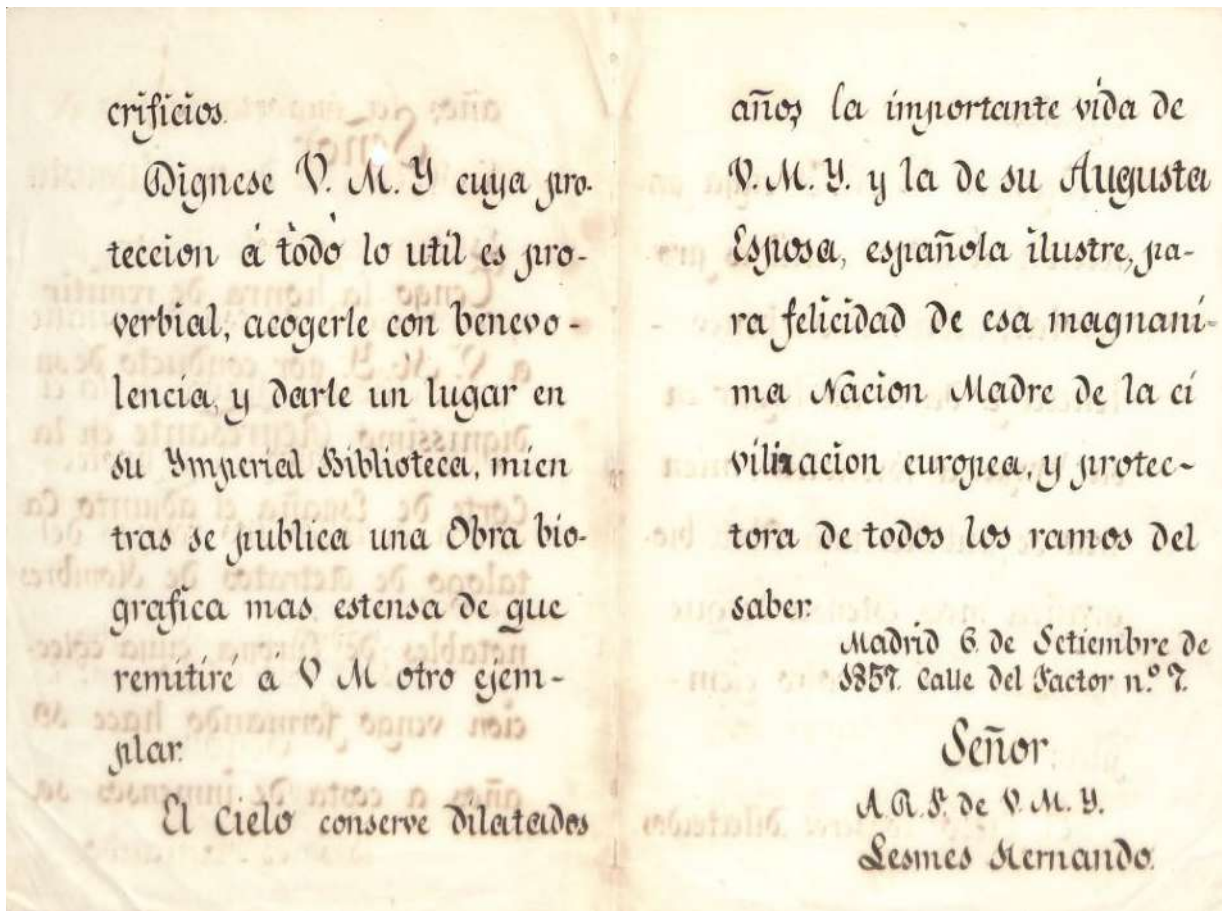 crificios.
Dignese V. M. Y cuya pro-
teccion á todo lo util es pro-
verbial, acogerle con benevo-
lencia, y darle un lugar en
su Ymperial Biblioteca, mien
tras se publica una Obra bio-
grafica mas estensa de que
remitiré á V M otro ejem-
plar.
El Cielo conserve dilatados
años la importante vida de
V. M. Y. y la de su Augusta
Esposa, española ilustre, pa-
ra felicidad de esa magnani-
ma Nacion Madre de la ci
vilizacion europea, y protec-
tora de todos los ramos del
saber.
Madrid 6 de Setiembre de
1857. Calle del Factor n.º 7.
Señor
A. R. P. de V. M. Y.
Lesmes Hernando.